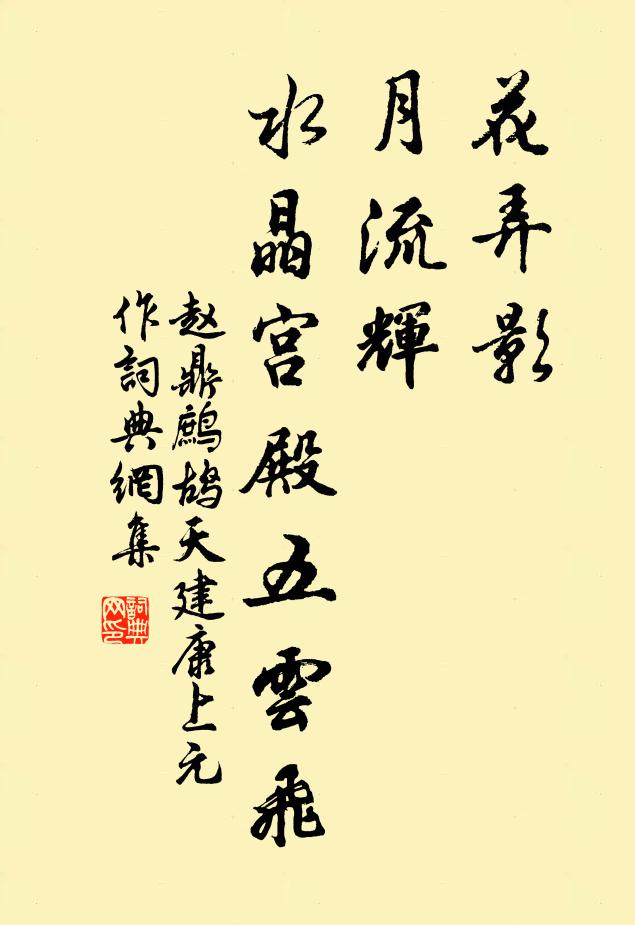 花弄影
月流輝
水晶宮殿五雲飛
赵鼎鷓鴣天建康上元
作詞典網集
詞典网印